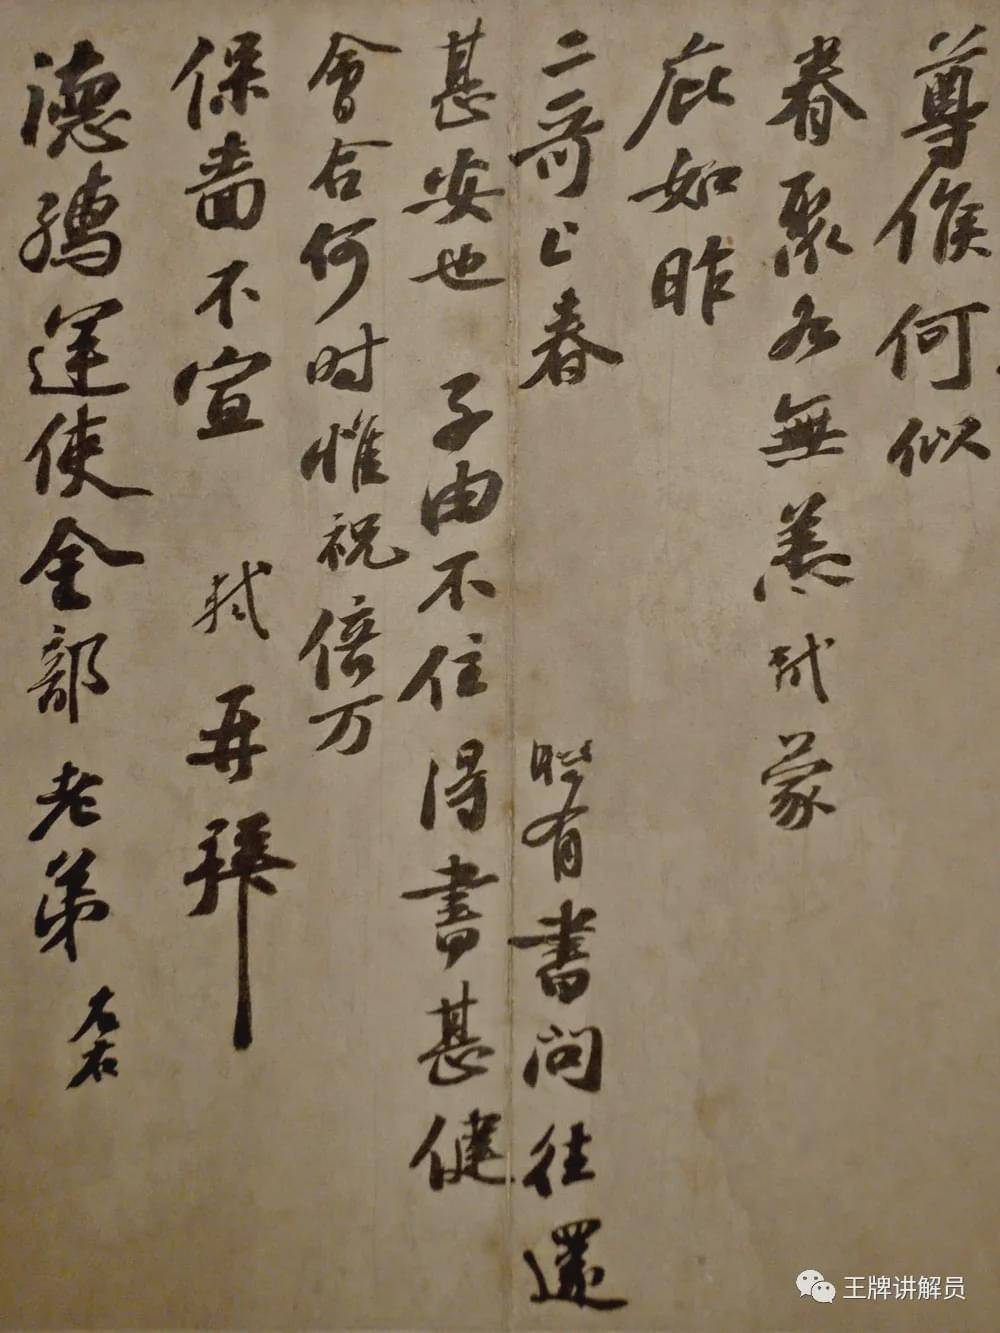 尊候何似
眷聚各無恙軾蒙
庇如昨
二哥上春時有書問往還
甚安也子由不住得書甚健
會合何时惟祝倍万
保嗇不宣軾再拜
德孺運使金部老弟左右
王牌讲解员